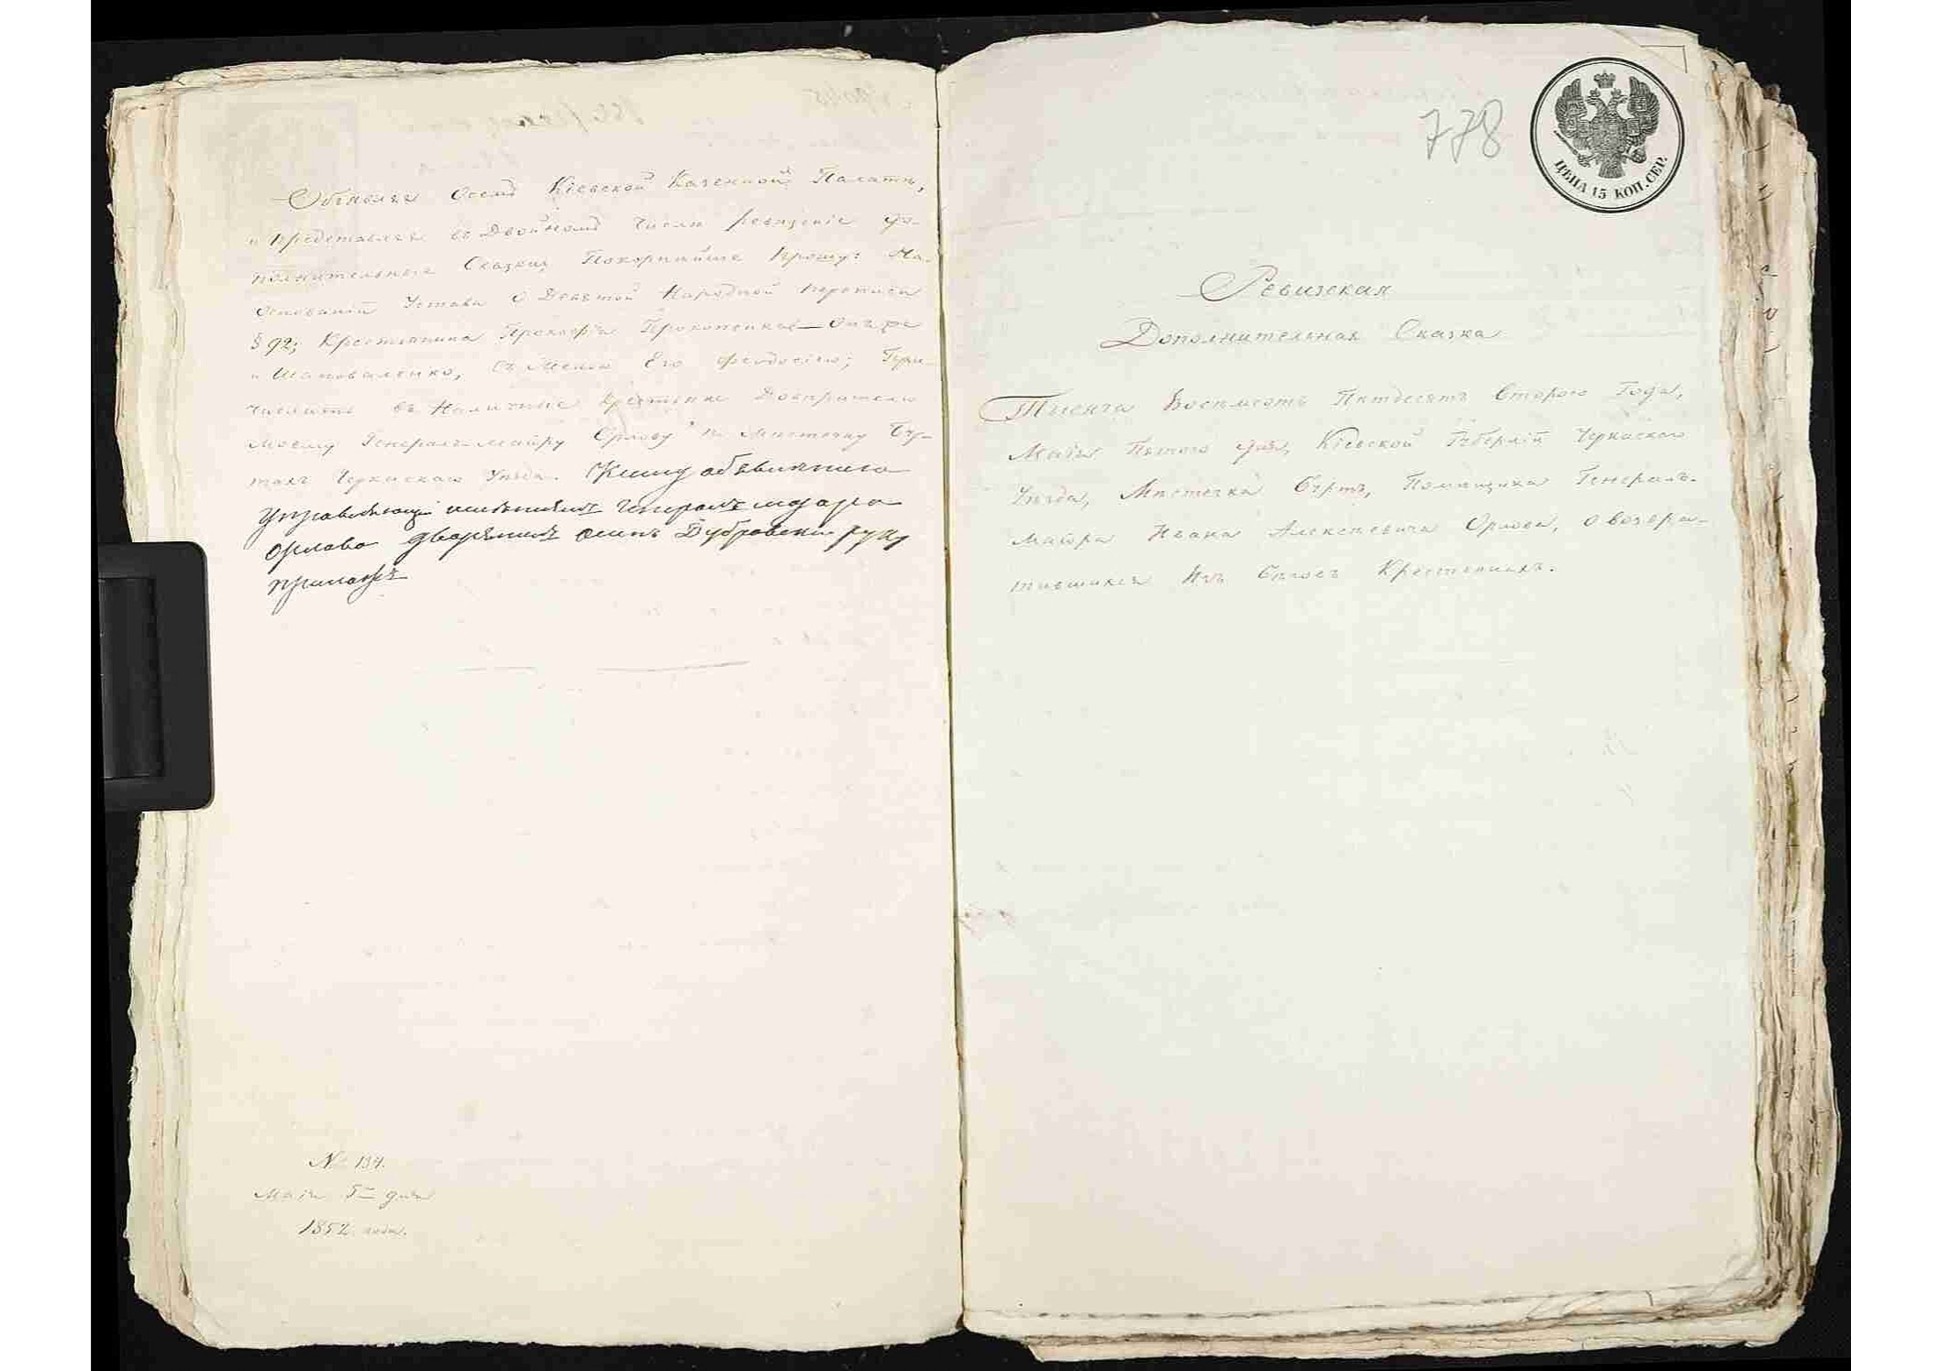 Объявляя о семъ Кіевской Казенной Палатѣ,
и представляя въ двойномъ числѣ ревизскіе до-
полнительные Сказки, Покорнейше прошу: На
основаніи Устава о Девятой Народной переписи
§ 92; Крестьянина Прокофія Прокопенка — онъ же
и Шаповаленко, съ женою Его Феодосіею; При-
числить въ Наличные Крестьяне Довѣрителю
моему Генералъ-Маіору Орлову по Мѣстечку Бу-
Черкаскаго Уѣзда. К сему объявлению
управляющій имѣниемъ генералъ маиора
Орлова дворянинъ осипъ Дубровски руку
приложилъ
№ 134.
Маія 5 дня
1852 года.
778
ЦЕНА 15 КОП. СЕР.
Ревизская
Дополнительная Сказка
Тысяча Восемьсотъ Пятдесятъ Второго Года,
Маія Пятого дня, Кіевской Губерніи Черкаскаго
Уѣзда, Мѣстечка Помѣщика Генералъ-
Маіора Ивана Алексѣевича Орлова, о возвра-
тившихся Изъ бѣговъ Крестьянахъ.